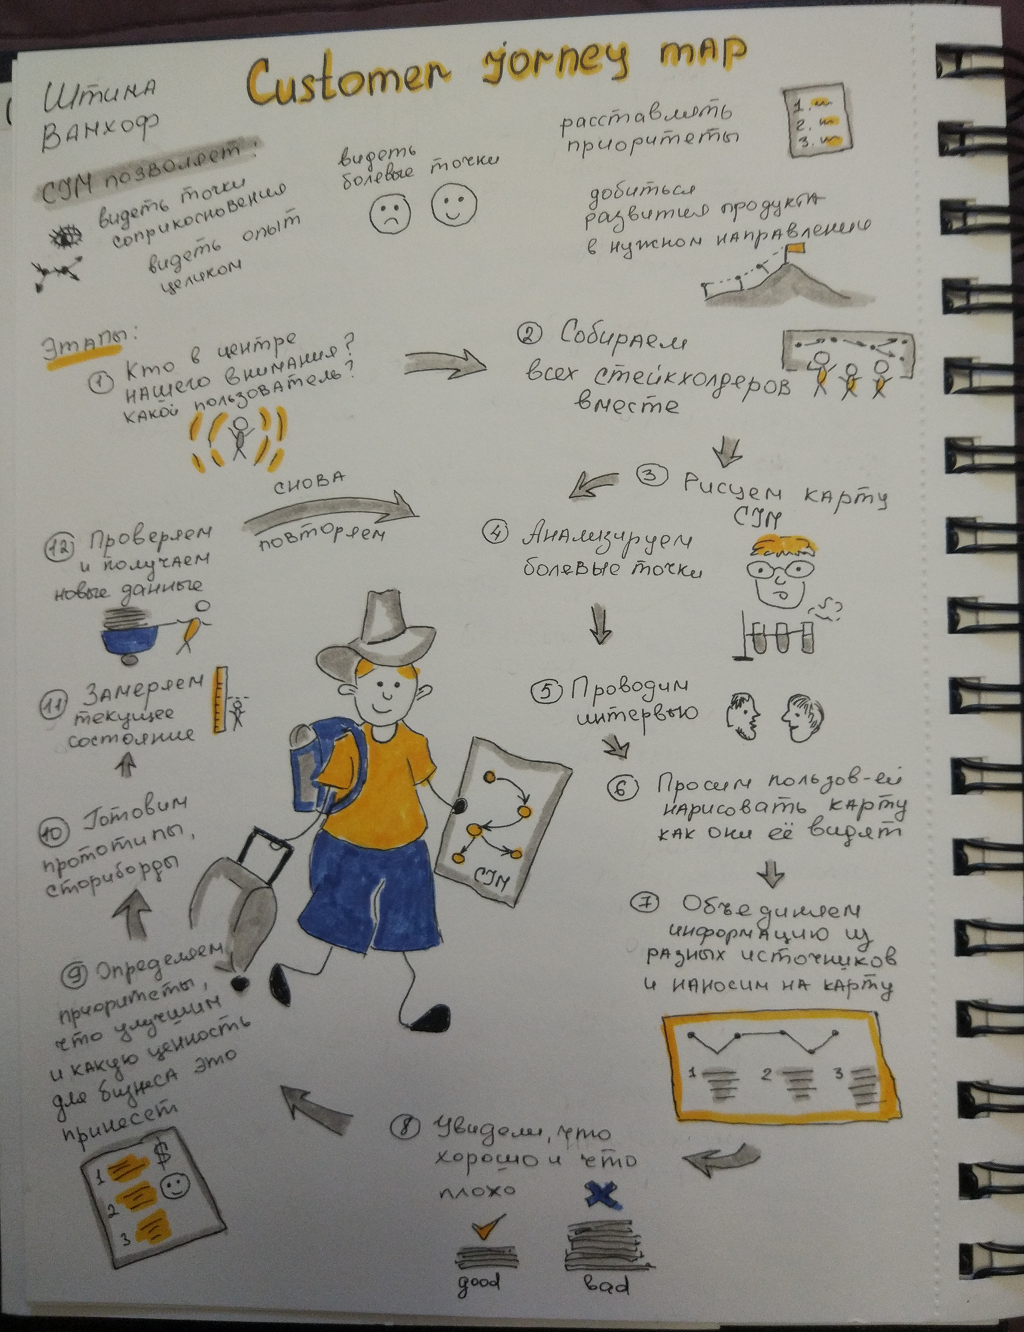 Customer jorney map
Штина
Ванхоф
CJM позволяет:
видеть точки
соприкосновения
видеть опыт
целиком
видеть
болевые точки
расставлять
приоритеты
1.
2.
3.
добиться
развития продукта
в нужном направлении
Этапы:
1 Кто в центре
нашего внимания?
какой пользователь?
2 Собираем
всех стейкхолдеров
вместе
3 Рисуем карту
CJM
4 Анализируем
болевые точки
5 Проводим
интервью
6 Просим пользов-ей
нарисовать карту
как они её видят
7 Объединяем
информацию из
разных источников
и наносим на карту
1 2 3
8 Увидели, что
хорошо и что
плохо
good bad
9 Определяем
приоритеты,
что улучшим
и какую ценность
для бизнеса это
принесёт
$
1
2
3
10 Готовим
прототипы,
сториборды
11 Замеряем
текущее
состояние
12 Проверяем
и получаем
новые данные
снова
повторяем
CJM